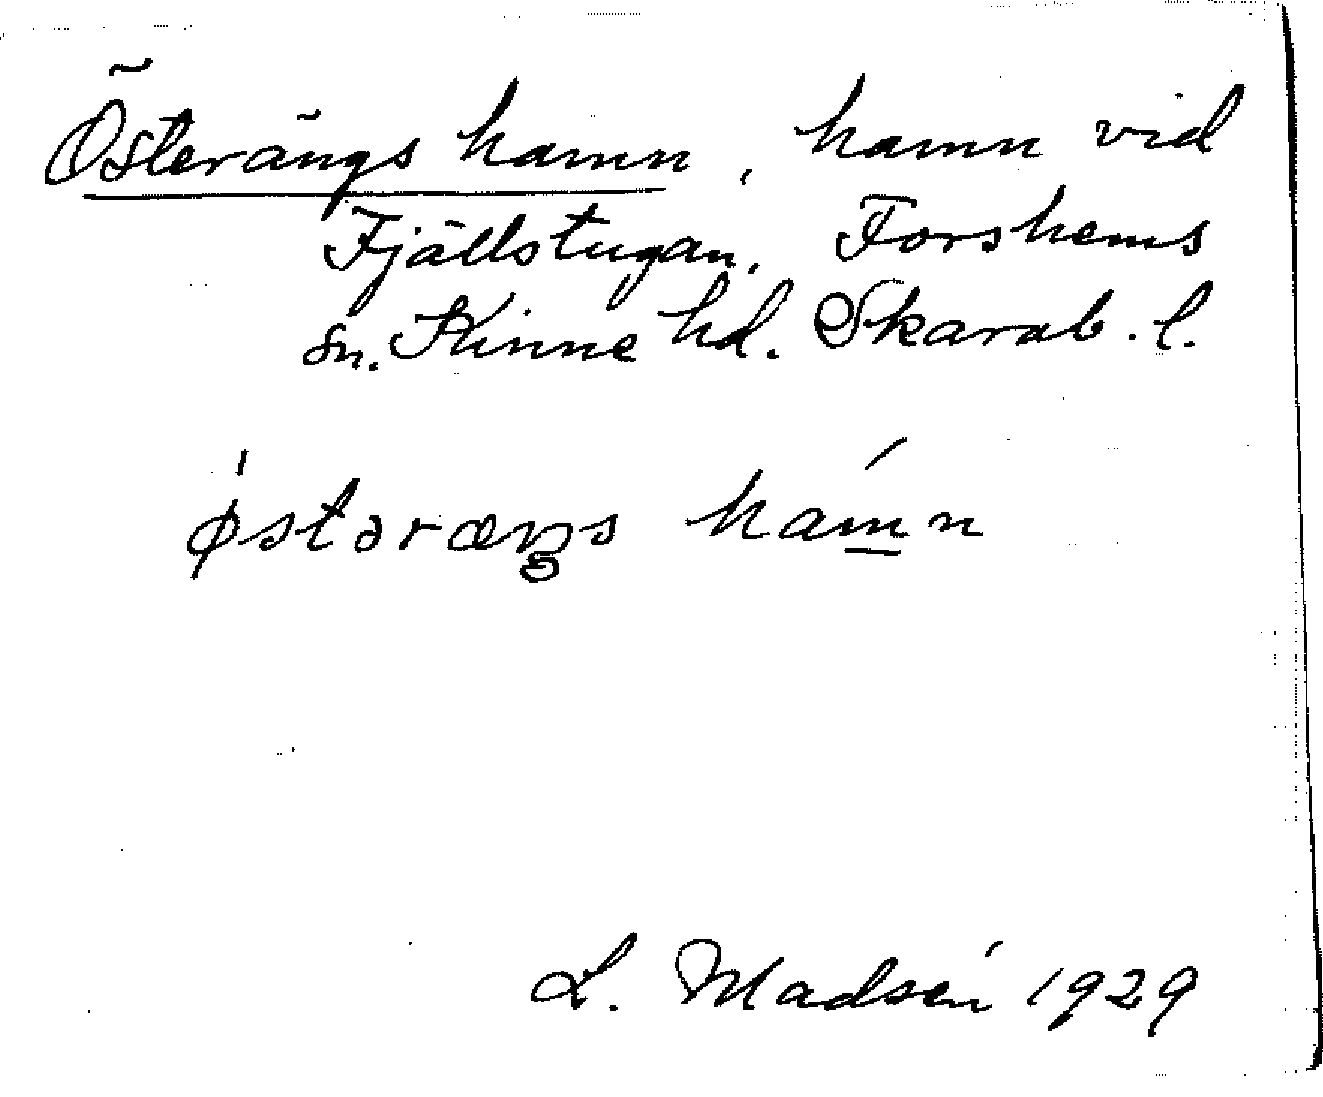 Österängs hamn, hamn vid
Fjällstugan, Forshems
sn. Kinne hd. Skarab. l.
ø̍stəræŋs hám̲n
L. Madsén 1929